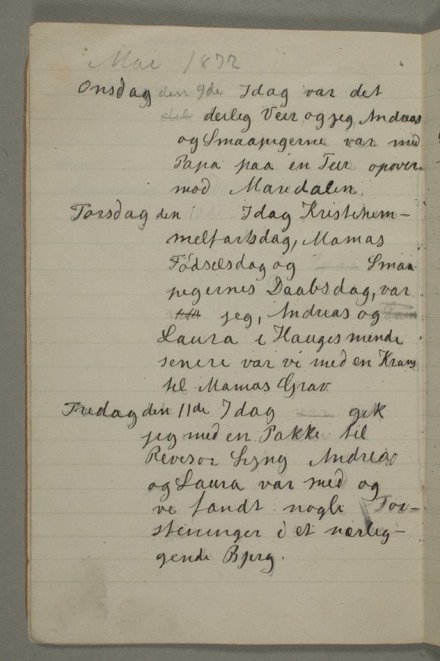 Mai 1872
Onsdag den 9de Idag var det
deilig Veir og jeg, Andreas
og Smaapigerne var med
Papa paa en Tur opover
mod Maridalen.
Torsdag den Idag Kristihim-
melfartsdag, Mamas
Fødselsdag og Smaa
pigernes Daabsdag, var
jeg, Andreas og
Laura i Hauges minde
senere var vi med en Krans
til Mamas Grav
Fredag den 11de Idag gik
jeg med en Pakke til
Revisor Andreas
og Laura var med og
vi fandt nogle For-
steninger i et nærlig-
gende Bjerg.